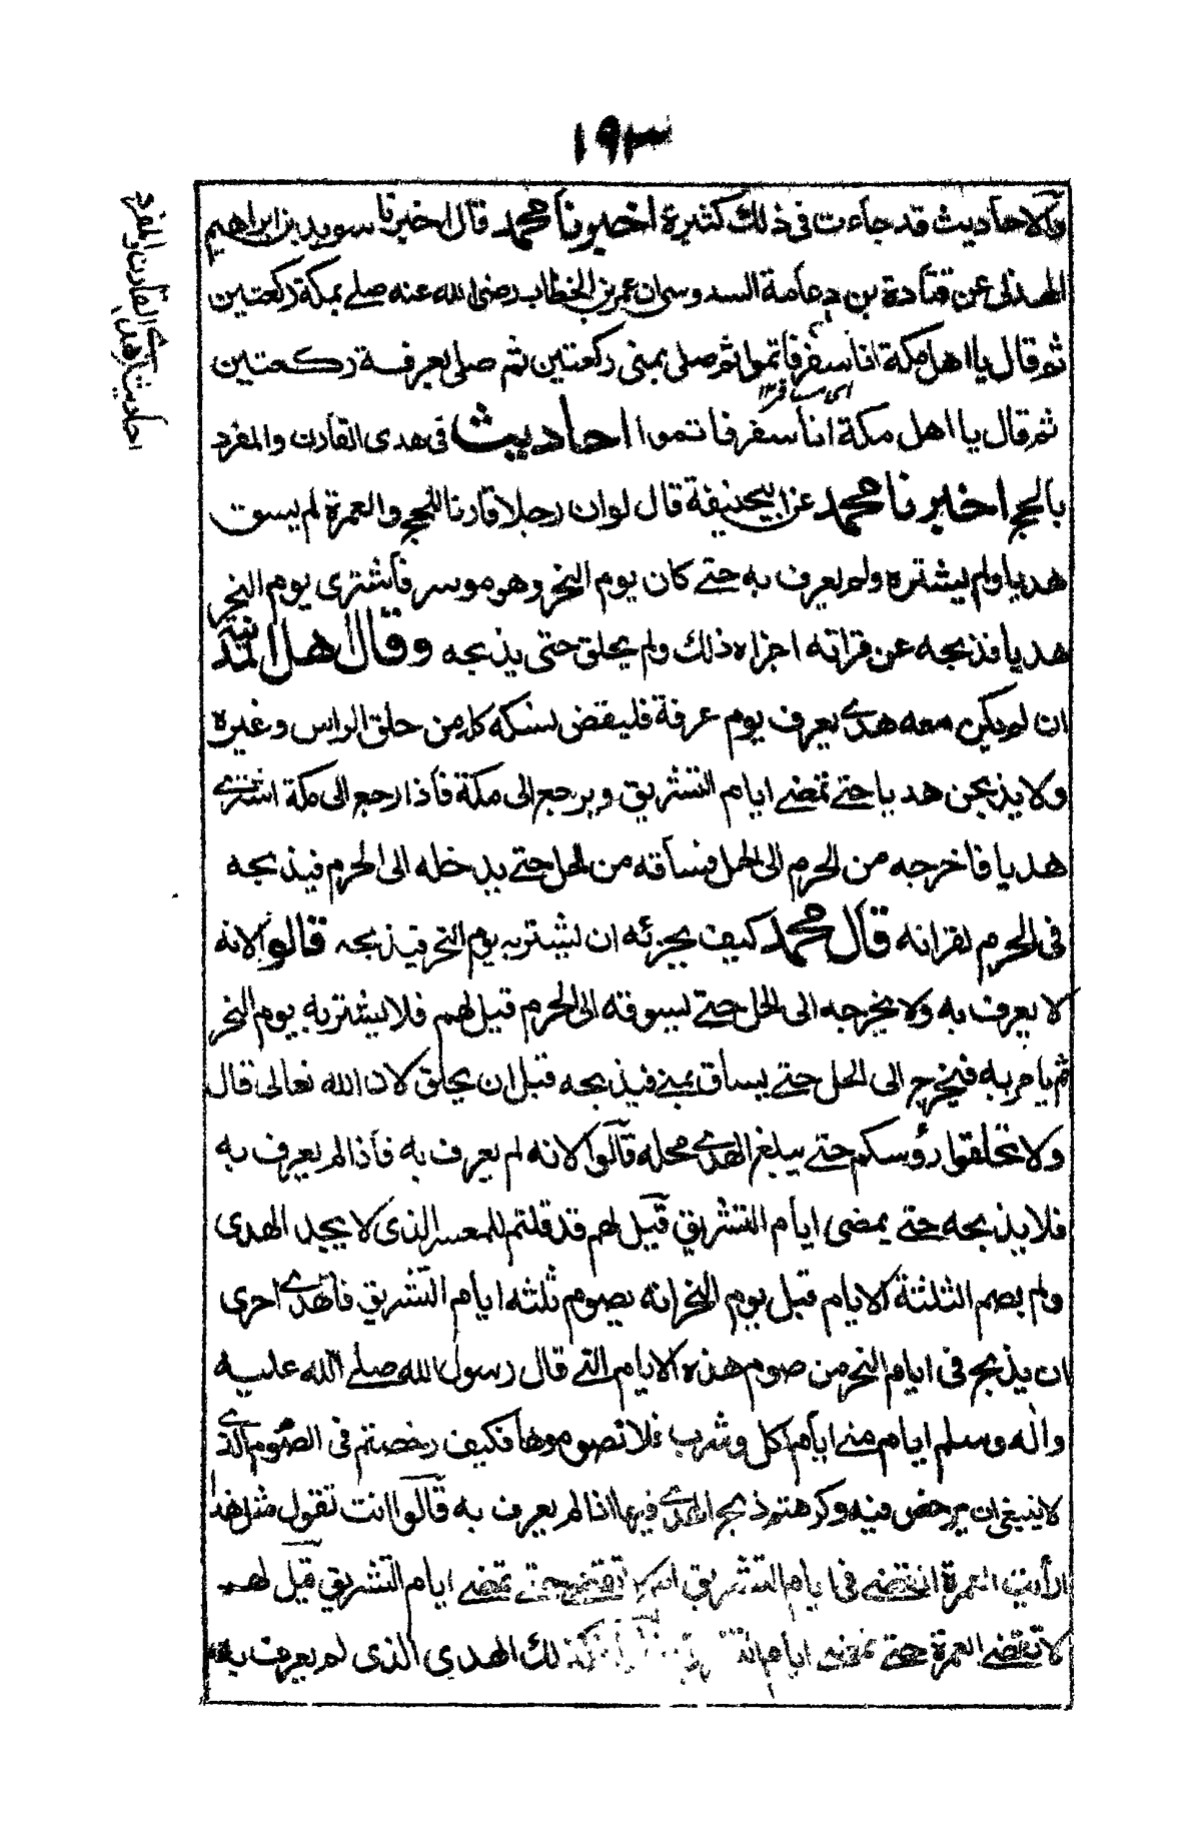 ١٩٣
والاحاديث قد جاءت في ذلك كثيرة اخبرنا محمد قال اخبرنا سويد بن ابراهيم
الهذلي عن قتادة بن دعامة السدوسي ان عمر بن الخطاب رضى الله عنه صلے بمكة ركعتين
ثم قال يا اهل مكة انا سفر فاتموا ثم صلى بمنى ركعتين ثم صلى بعرفة ركعتين
اى مسافر ١٢
ثم قال يا اهل مكة انا سفر فاتموا احاديث في هدى القارن والمفرد
بالحج اخبرنا محمد عن ابيحنيفة قال لو ان رجلا قارنا للحج والعمرة لم يسق
هديا ولم يشتره ولم يعرف به حتے كان يوم النحر وهو موسر فاشترى يوم النحر
هديا فذبحه عن قرانه اجزاه ذلك ولم يحلق حتى يذبحه وقال اهل المدينة
ان لم يكن معه هدے يعرف يوم عرفة فليقض نسكه كله من حلق الراس وغيره
ولا يذبحن هديا حتے تمضے ايام التشريق ويرجع الى مكة فاذا رجع الى مكة اشترے
هديا فاخرجه من الحرم الى الحل فساقه من الحل حتے يدخله الى الحرم فيذبحه
في الحرم لقرانه قال محمد كيف يجزئه ان يشتريه يوم النحر فيذبحه قالوا لانه
لا يعرف به ولا يخرجه الى الحل حتے يسوقه الى الحرم قيل لهم فلا يشتريه يوم النحر
ثم يامر به فيخرج الى الحل حتے يساق بمنے فيذبحه قبل ان يحلق لان الله تعالى قال
ولا تحلقوا رؤسكم حتے يبلغ الهدے محله قالوا لانه لم يعرف به فاذا لم يعرف به
فلا يذبحه حتے يمضى ايام التشريق قيل لهم قد قلتم للمعسر الذى لا يجد الهدى
ولم يصم الثلثة الايام قبل يوم النحر انه يصوم ثلثه ايام التشريق فالهدے احرى
ان يذبح في ايام النحر من صوم هذه الايام التے قال رسول الله صلے الله عليه
واله وسلم ايام منے ايام اكل وشرب فلا تصوموها فكيف رخصتم في الصوم الذے
لا ينبغى ان يرخص فيه وكرهتم ذبح الهدے فيها اذا لم يعرف به قالوا انت تقول مثل هذا
ارأيت العمرة اتقضے في ايام التشريق ام لا تقضے حتے تمضے ايام التشريق قيل لهم
لا تقضے العمرة حتے تمضے ايام لك الهدى الذى لم يعرف به
احاديث هدے القارن والمفرد